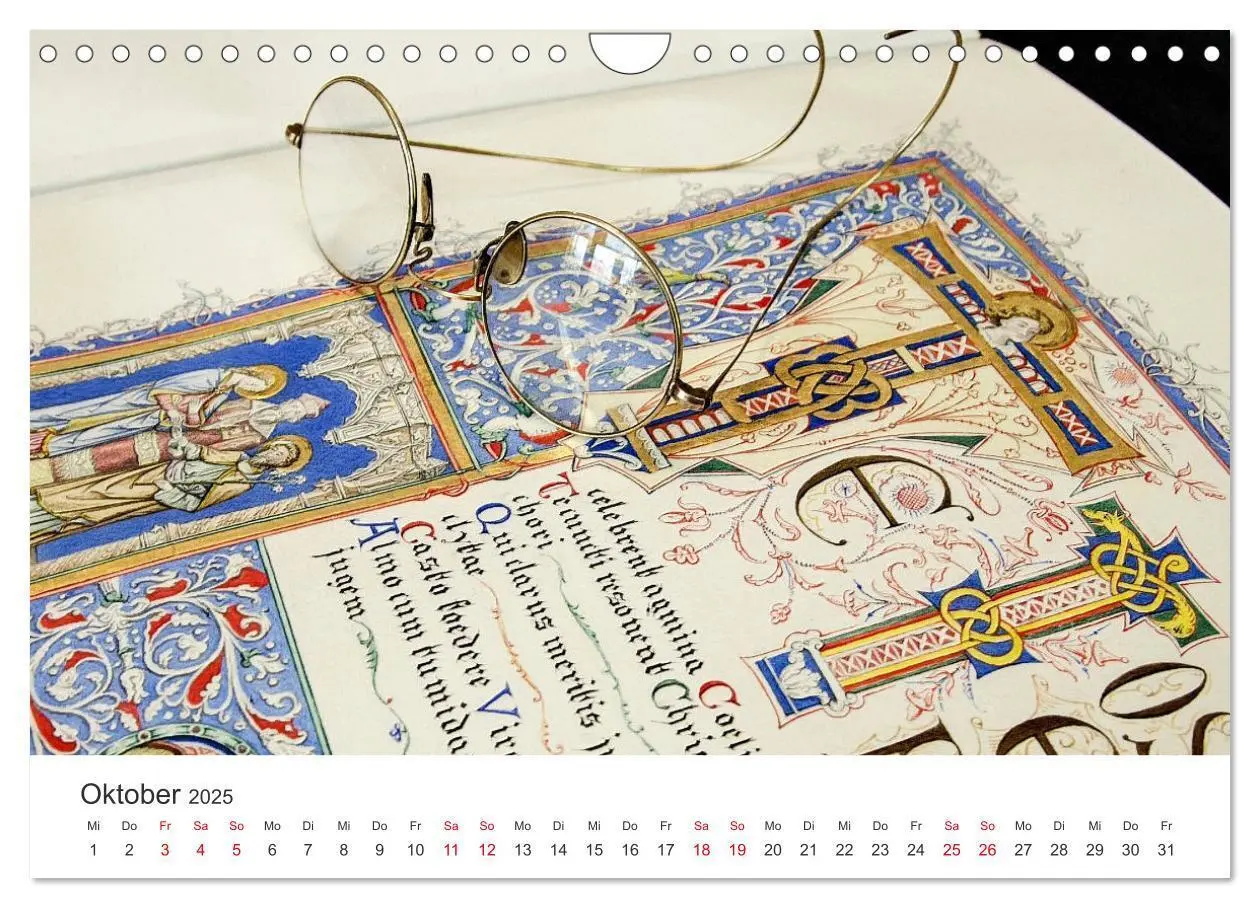 celebrent agmina Coeli
Te cuncti resonent Chri
chori
Qui clarus meritis j
clytae
Casto foedere Vir
Almo cum tumida
jugem
Oktober 2025
Mi Do Fr Sa So Mo Di Mi Do Fr Sa So Mo Di Mi Do Fr Sa So Mo Di Mi Do Fr Sa So Mo Di Mi Do Fr
1 2 3 4 5 6 7 8 9 10 11 12 13 14 15 16 17 18 19 20 21 22 23 24 25 26 27 28 29 30 31